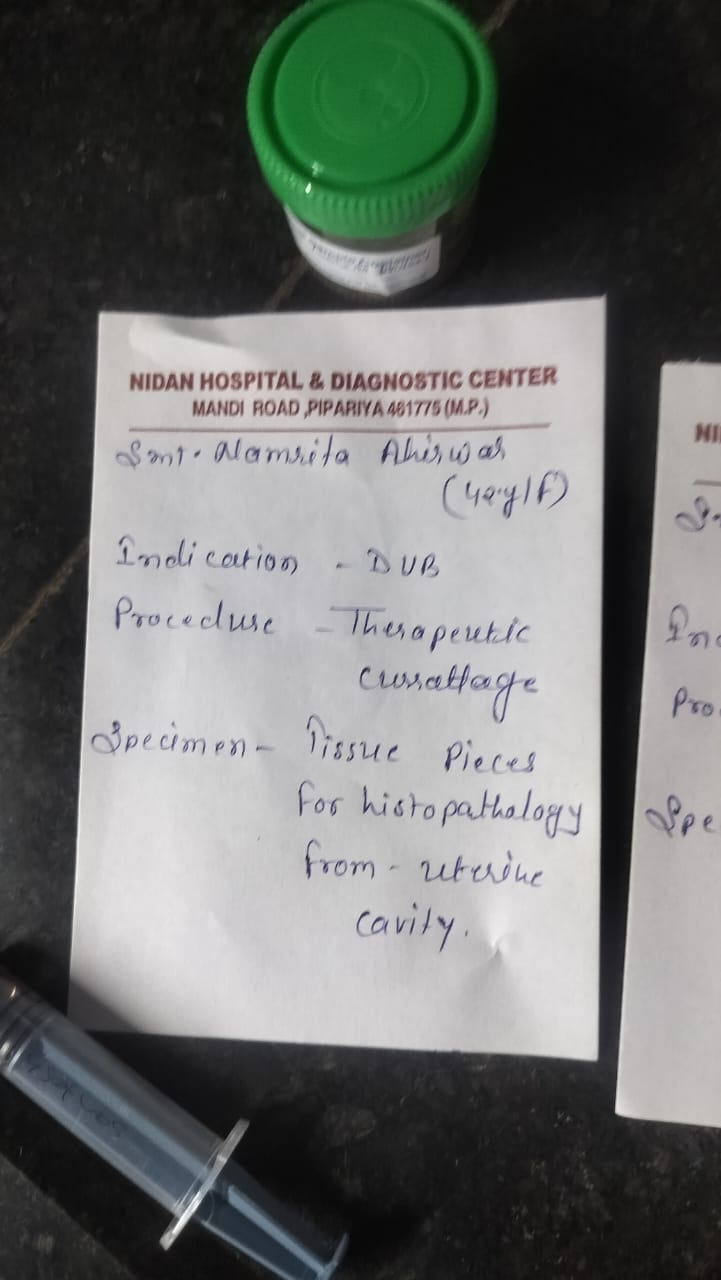 NIDAN HOSPITAL & DIAGNOSTIC CENTER
MANDI ROAD ,PIPARIYA 461775 (M.P.)
Smt. Namrita Ahirwar
(42y/F)
Indication - DUB
Procedure - Therapeutic
currattage
Specimen - Tissue Pieces
for histopathology
from - uterine
cavity.
NI
S
Ind
Pro
Spe